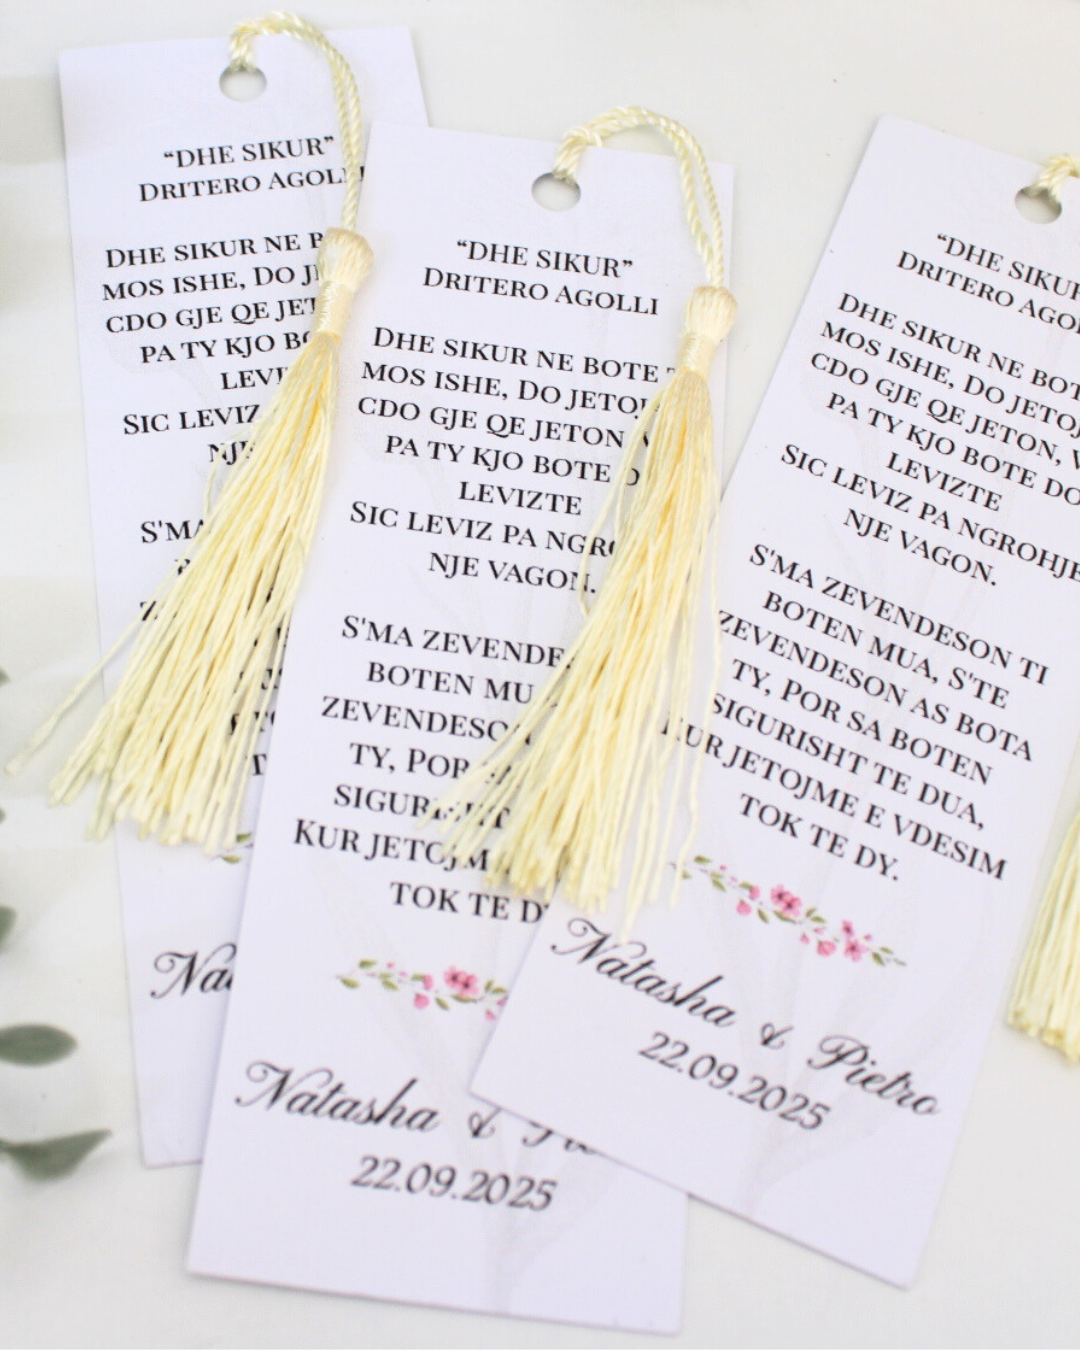 “DHE SIKUR”
DRITERO AGOLLI
DHE SIKUR NE
MOS ISHE, DO
CDO GJE QE
PA TY KJO
SIC LEVIZ
S'MA
“DHE SIKUR”
DRITERO AGOLLI
DHE SIKUR NE BOTE
MOS ISHE, DO
CDO GJE QE JETON
PA TY KJO BOTE
LEVIZTE
SIC LEVIZ PA
NJE VAGON.
S'MA
BOTEN
TY, POR
KUR
TOK TE
Natasha &
22.09.2025
“DHE SIKUR
DRITERO
DHE SIKUR NE
MOS ISHE, DO
CDO GJE QE JETON,
PA TY KJO BOTE DO
LEVIZTE
SIC LEVIZ PA NGROHJE
NJE VAGON.
S'MA ZEVENDESON TI
BOTEN MUA, S'TE
ZEVENDESON AS BOTA
TY, POR SA BOTEN
SIGURISHT TE DUA,
KUR JETOJME E VDESIM
TOK TE DY.
Natasha & Pietro
22.09.2025